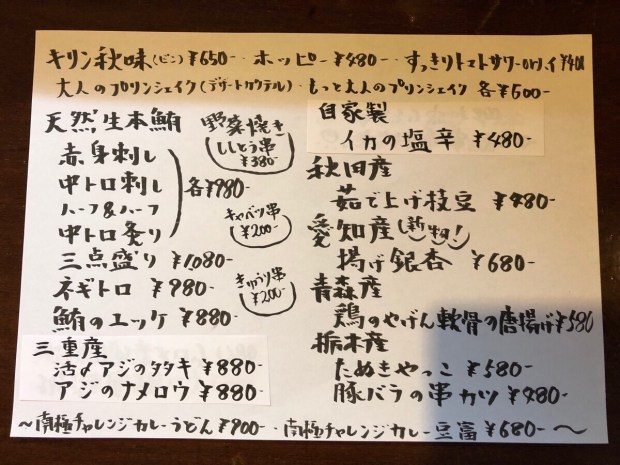 キリン秋味(ビン)¥650- ・ ホッピー ¥480- ・ すっきりトマトサワー
大人のプリンシェイク(デザートカクテル)・もっと大人のプリンシェイク 各¥600-
天然生本鮪
赤身刺し
中トロ刺し
ハーフ&ハーフ
中トロ炙り
各¥980-
三点盛り ¥1,080-
ネギトロ ¥980-
鮪のユッケ ¥880-
三重産
活〆アジのタタキ ¥880-
アジのナメロウ ¥880-
野菜焼き
ししとう串
¥380-
キャベツ串
¥200-
きゅうり串
¥200-
自家製
イカの塩辛 ¥480-
秋田産
茹で上げ枝豆 ¥480-
愛知産(新物!)
揚げ銀杏 ¥680-
青森産
鶏のやげん軟骨の唐揚げ ¥580
栃木産
たぬきやっこ ¥580-
豚バラの串カツ ¥480-
〜南極チャレンジカレーうどん ¥900- ・南極チャレンジカレー豆富 ¥680- 〜